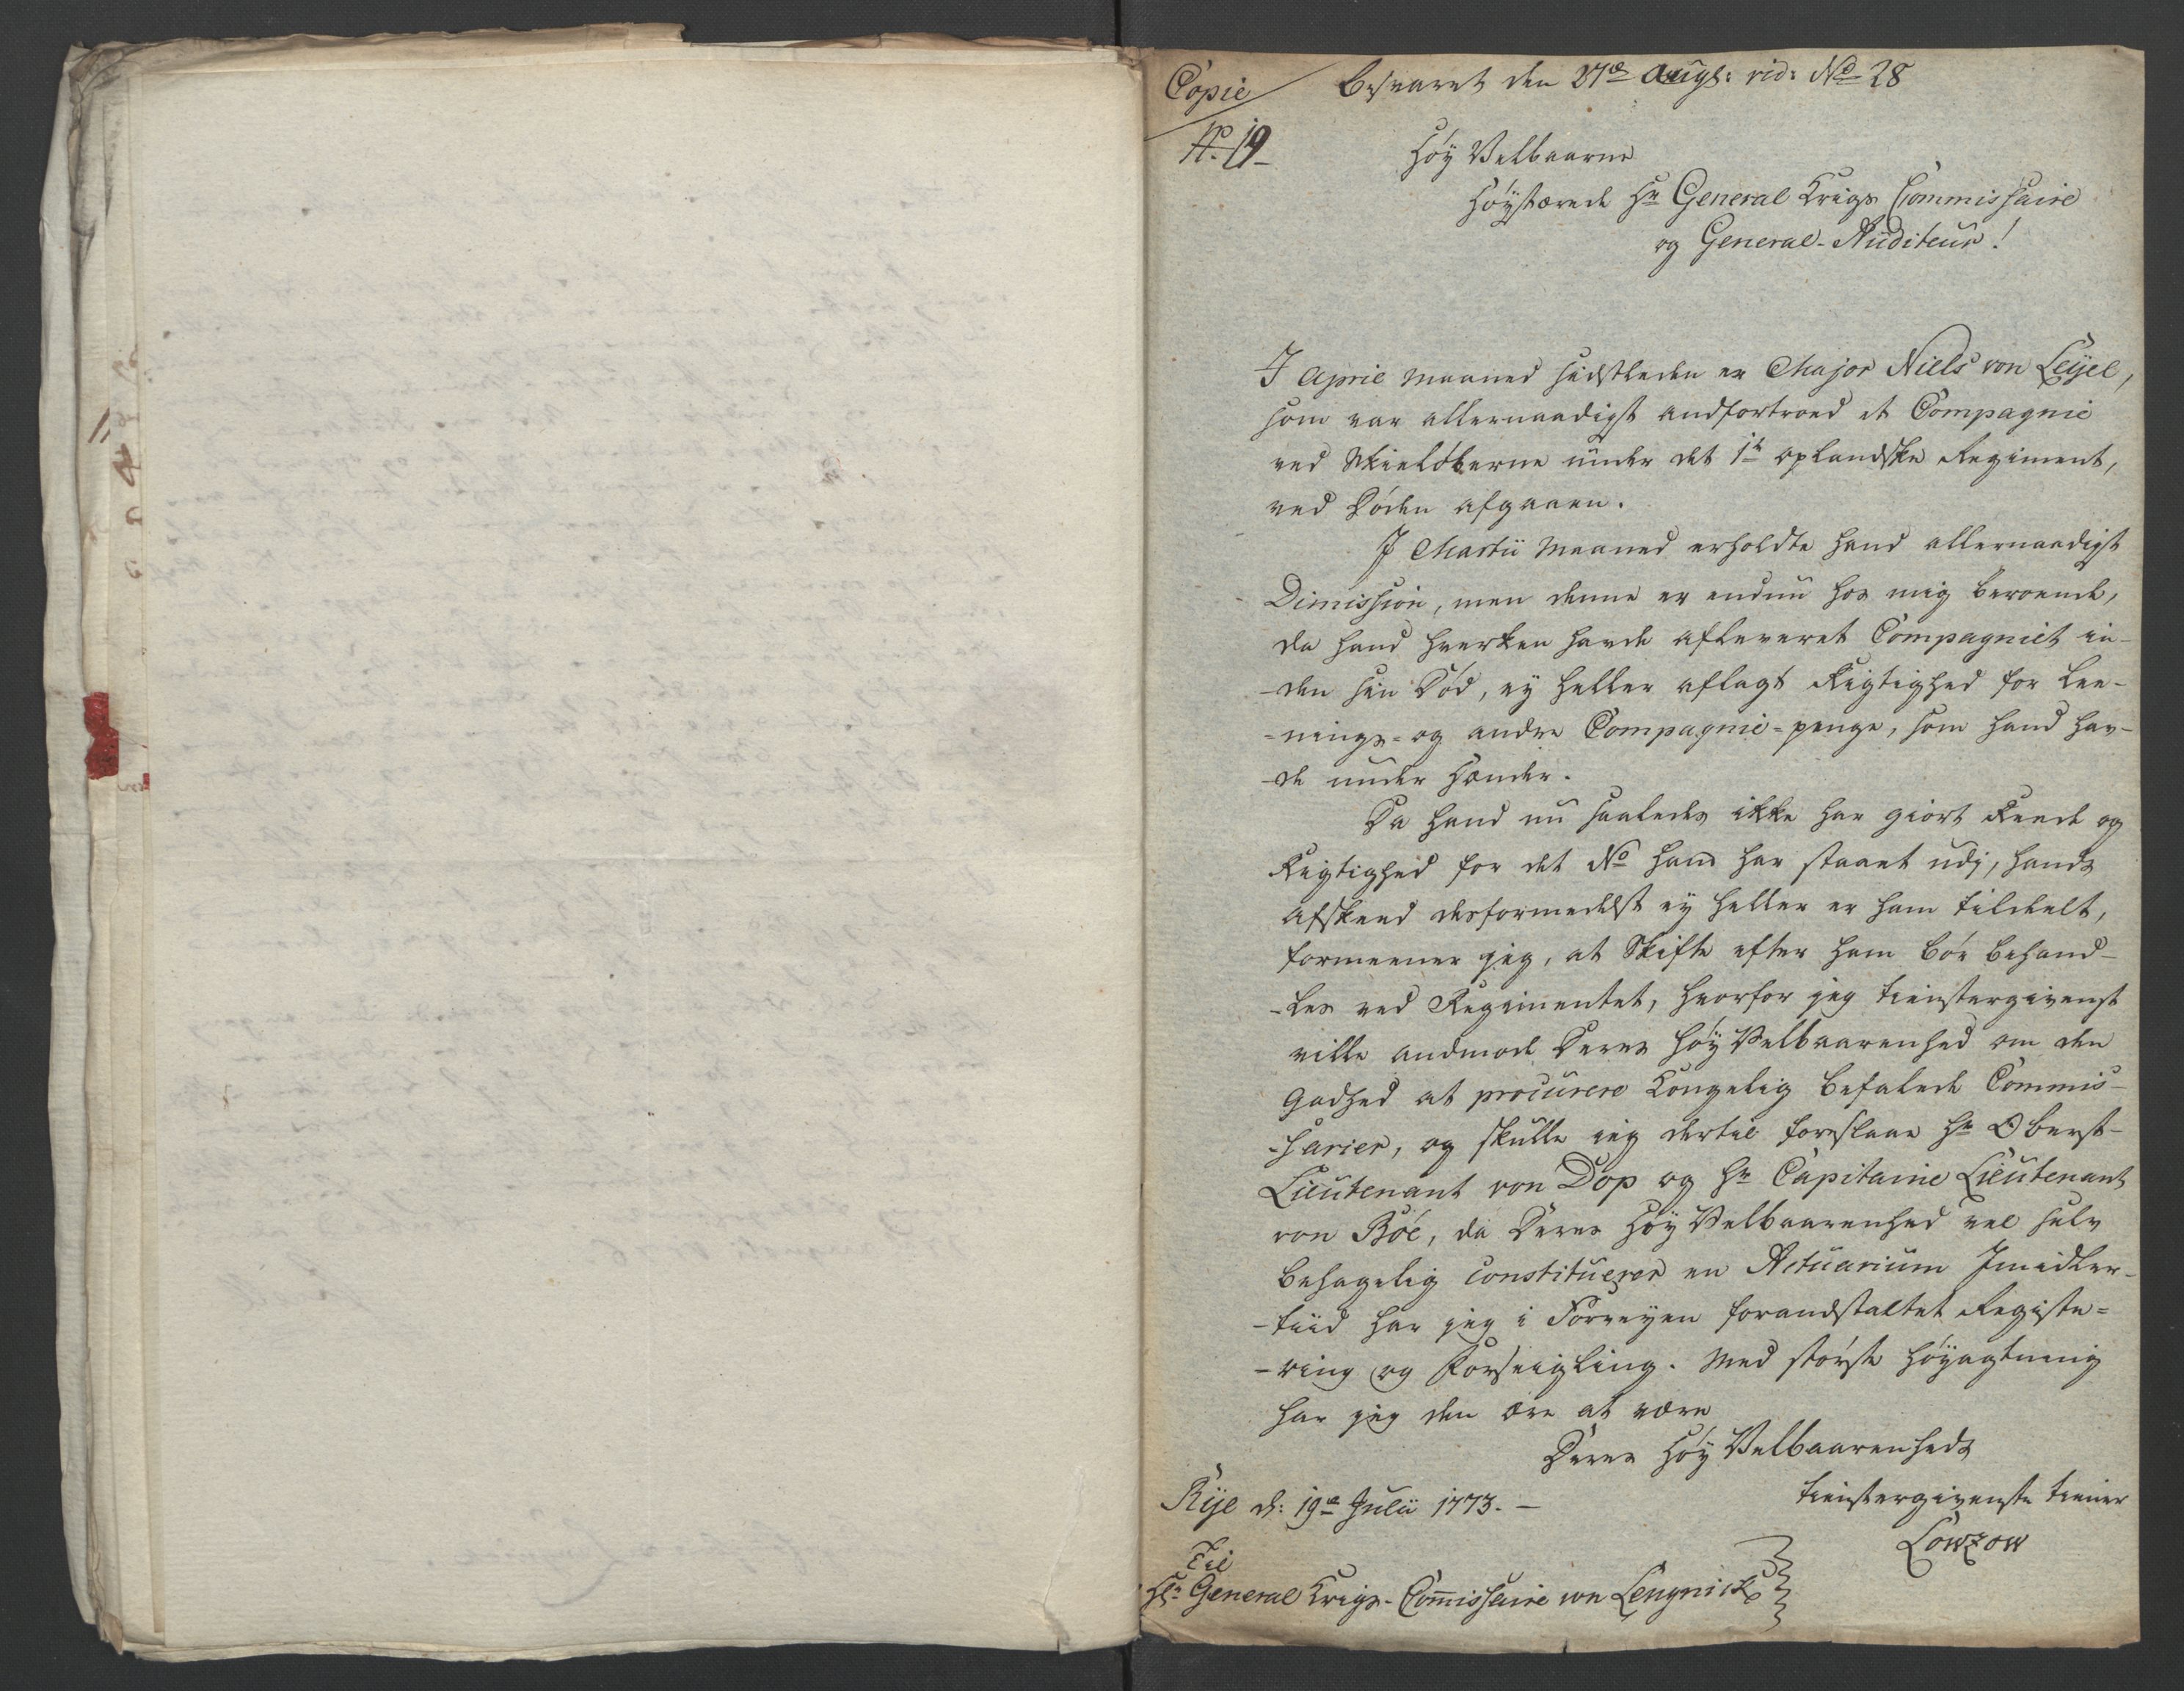 Copie
Besvaret den 27de Augs: vid: No 28
No. 19
Høy Velbaarne
Høystærede Hr General Krigs Commissaire
og General-Auditeur!
I April Maaned sidstleden er Major Niels von Leyel,
som var allernaadigst andfortroed et Compagnie
ved Skieløberne under det 1te oplandske Regiment,
ved Døden afgaaen.
I Martii Maaned erholdte hand allernaadigst
Dimission, men denne er endnu hos mig beroende,
da hand hverken havde afleveret Compagniet in-
-den sin Død, ey heller aflagt Rigtighed for Lee-
-nings- og andre Compagnie-penge, som hand hav-
-de under Hænder.
Da hand nu saaledes ikke har giort Reede og
Rigtighed for det No hand har staaet udj, hands
Afskeed desformedelst ey heller er ham tildeelt,
formeener jeg, at Skifte efter ham bør behand-
-les ved Regimentet, hvorfor jeg tienstergivenst
ville andmode Deres Høy Velbaarenhed om den
Godhed at procurere Kongelig befalede Commis-
-sarier, og skulle jeg dertil foreslaae Hr Oberst-
Lieutenant von Dop og Hr Capitaine Lieutenant
von Böe, da Deres Høy Velbaarenhed vel selv
behagelig constituerer en Actuarium Imidler-
-tiid har jeg i Forveyen forandstaltet Registe-
-ring og Forseigling. Med største Høyagtning
har jeg den ære at være
Deres Høy Velbaarenheds
Rye d: 19de Julii 1773. —
tienstergivenste tiener
Löwzow
Til
Hr. General Krigs-Com̅issaire von Lengnick